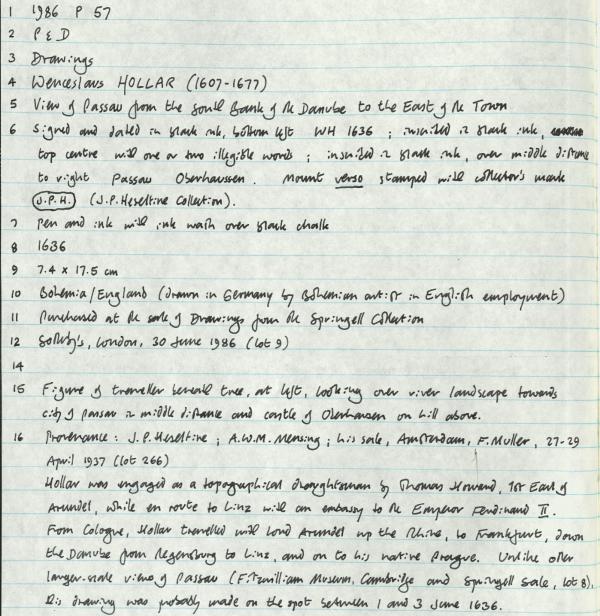 1 1986 P 57
2 P & D
3 Drawings
4 Wenceslaus HOLLAR (1607-1677)
5 View of Passau from the South Bank of the Danube to the East of the Town
6 Signed and dated in black ink, bottom left WH 1636 ; inscribed in black ink,
top centre with one or two illegible words ; inscribed in black ink, over middle distance
to right Passau Oberhaussen. Mount verso stamped with collector's mark
J.P.H. (J.P. Heseltine Collection).
7 Pen and ink with ink wash over black chalk
8 1636
9 7.4 x 17.5 cm
10 Bohemia/England (drawn in Germany by Bohemian artist in English employment)
11 Purchased at the sale of Drawings from the Springell Collection
12 Sotheby's, London, 30 June 1986 (lot 9)
14
15 Figure of traveller beneath tree, at left, looking over river landscape towards
city of Passau in middle distance and castle of Oberhausen on hill above.
16 Provenance : J.P. Heseltine ; A.W.M. Mensing ; his sale, Amsterdam, F. Muller, 27-29
April 1937 (lot 266)
Hollar was engaged as a topographical draughtsman by Thomas Howard, 1st Earl of
Arundel, while en route to Linz with an embassy to the Emperor Ferdinand II.
From Cologne, Hollar travelled with Lord Arundel up the Rhine, to Frankfurt, down
the Danube from Regensburg to Linz, and on to his native Prague. Unlike other
larger-scale views of Passau (Fitzwilliam Museum, Cambridge and Springell Sale, lot 8),
this drawing was probably made on the spot between 1 and 3 June 1636.